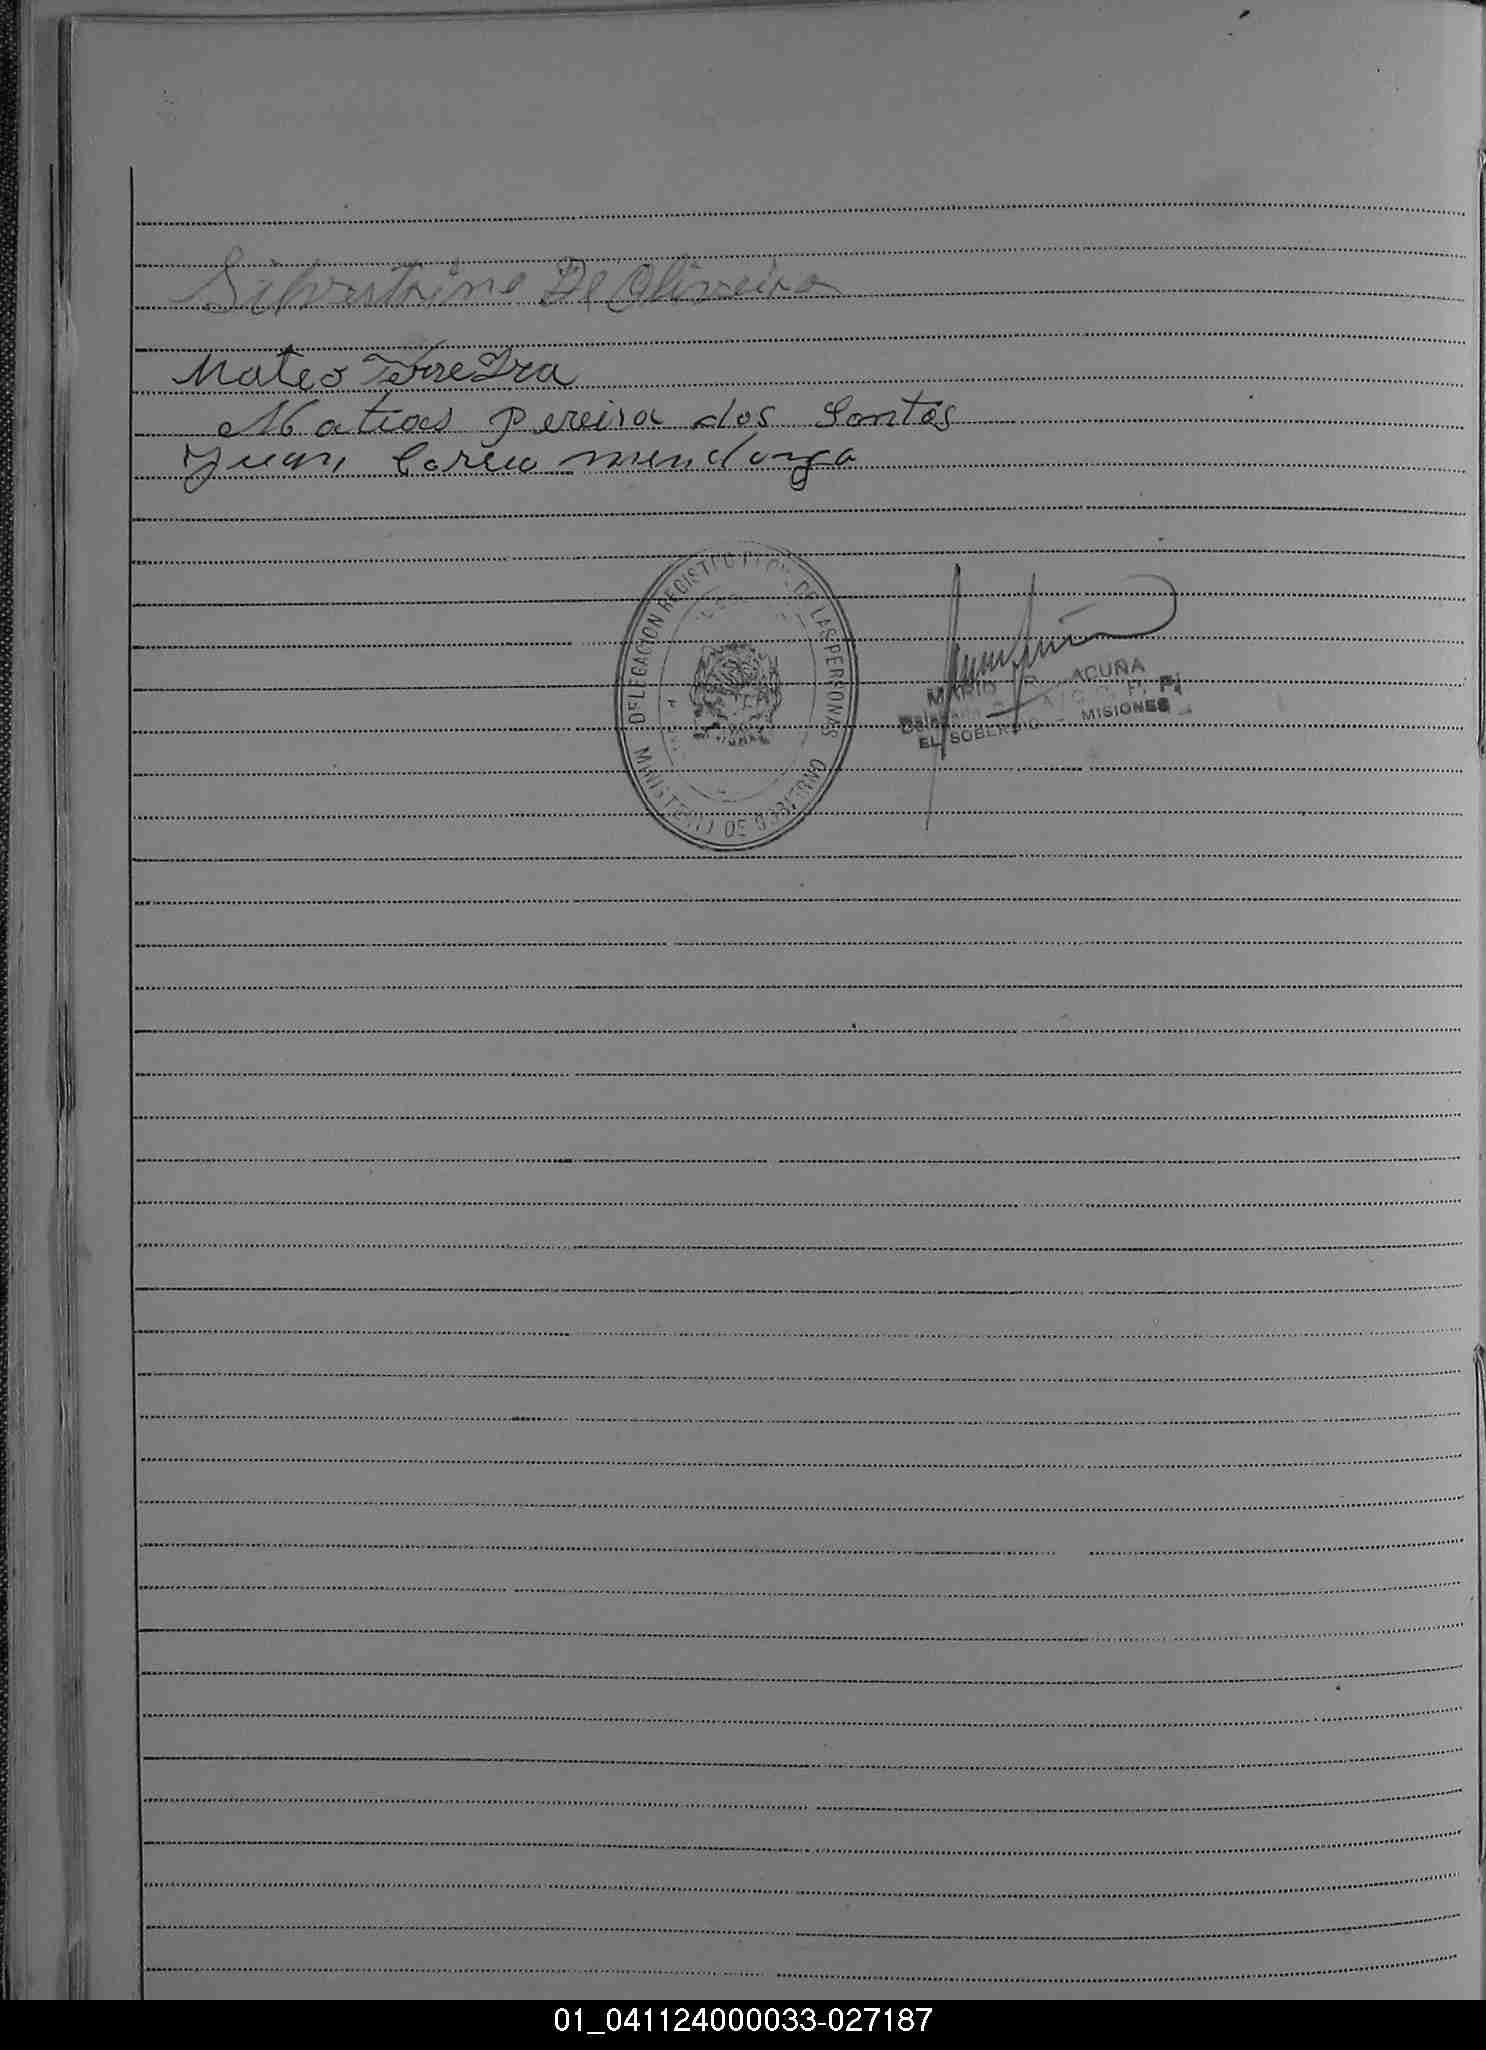 Silvestrine De Oliveira
Mateo FerreIra
Matias Pereira dos Santos
Juan Correa mendonza
DELEGACION REGISTRO PROV. DE LAS PERSONAS
MINISTERIO DE GOBIERNO
MARIO R. ACUÑA
EL SOBERBIO - MISIONES
01_041124000033-027187